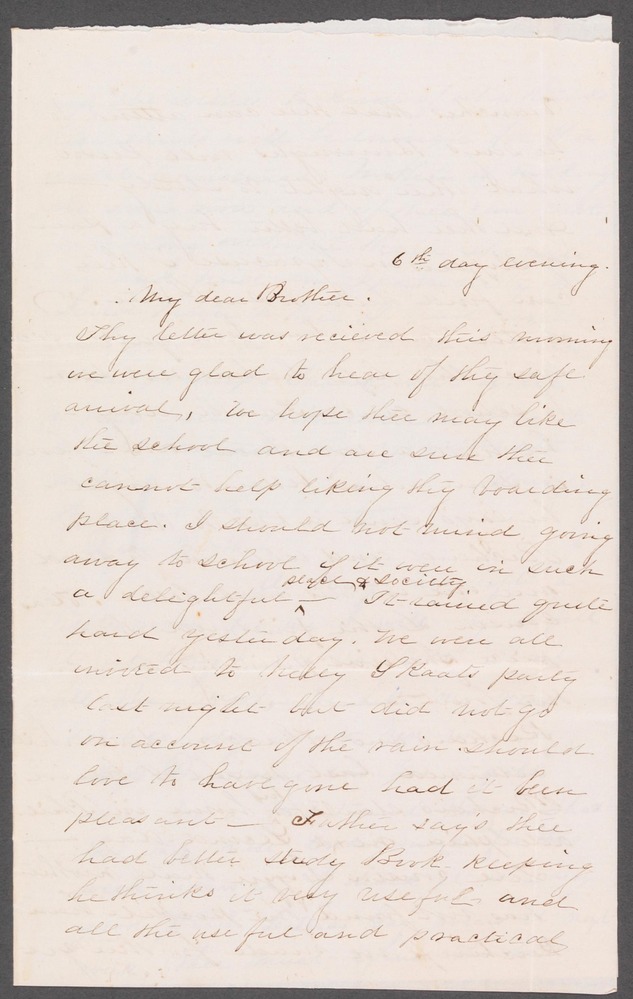 6th day evening.
My dear Brother.
Thy letter was recieved this morning
we were glad to hear of thy safe
arrival, we hope thee may like
the school and are sure thee
cannot help liking thy boarding
place. I should not mind going
away to school if it were in such
a delightful — place & society It rained quite
hard yesterday. We were all
invited to Skaats party
last night but did not go
on account of the rain should
love to have gone had it been
pleasant — Father say's thee
had better study Book keeping
he thinks it very useful and
all the useful and practical